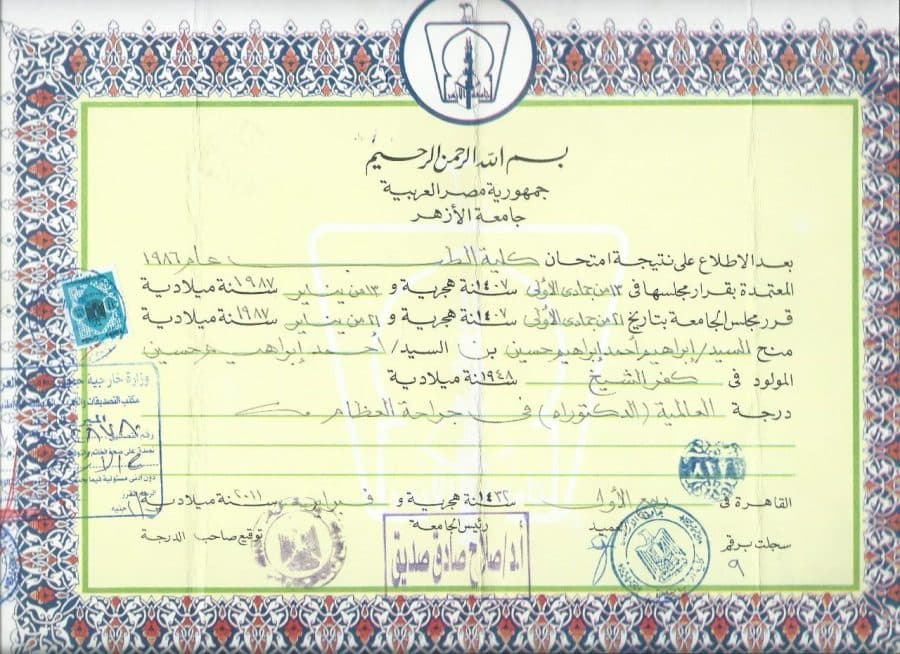 جامعة الأزهر
بسم الله الرحمن الرحيم
جمهورية مصر العربية
جامعة الأزهر
بعد الاطلاع على نتيجة امتحان كلية الطب عام ١٩٨٦
المعتمدة بقرار مجلسها في ١٣ من جمادى الأولى سنة ١٤٠٧ هجرية و ١٣ من يناير سنة ١٩٨٧ ميلادية
قرر مجلس الجامعة بتاريخ ٢١ من جمادى الأولى سنة ١٤٠٧ هجرية و ٢١ من يناير سنة ١٩٨٧ ميلادية
منح السيد/ إبراهيم أحمد إبراهيم حسين بن السيد/ أحمد إبراهيم حسين
المولود في كفر الشيخ سنة ١٩٤٨ ميلادية
درجة العالمية (الدكتوراه) في جراحة العظام
القاهرة في ربيع الأول سنة ١٤٣٢ هجرية و فبراير سنة ٢٠١١ ميلادية
سجلت برقم ٩
العميد
رئيس الجامعة
توقيع صاحب الدرجة
أ.د/ صلاح صادق صديق
وزارة خارجية
مكتب التصديقات